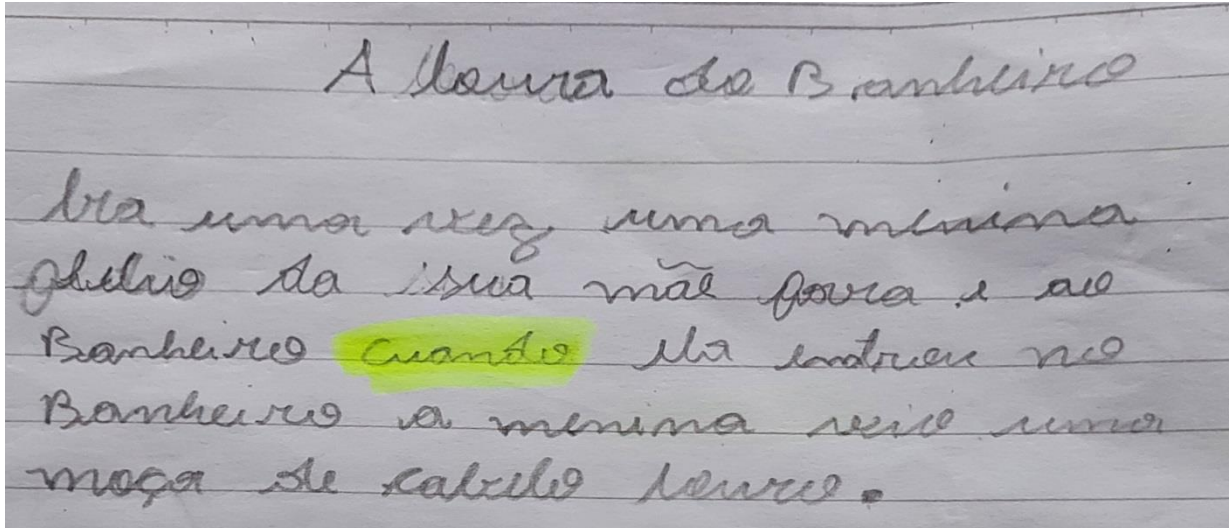 A loura do Banheiro
Era uma vez uma menina
da sua mãe e ao
Banheiro cuando ela entrou no
Banheiro a menina veio uma
moça de cabelo louro.